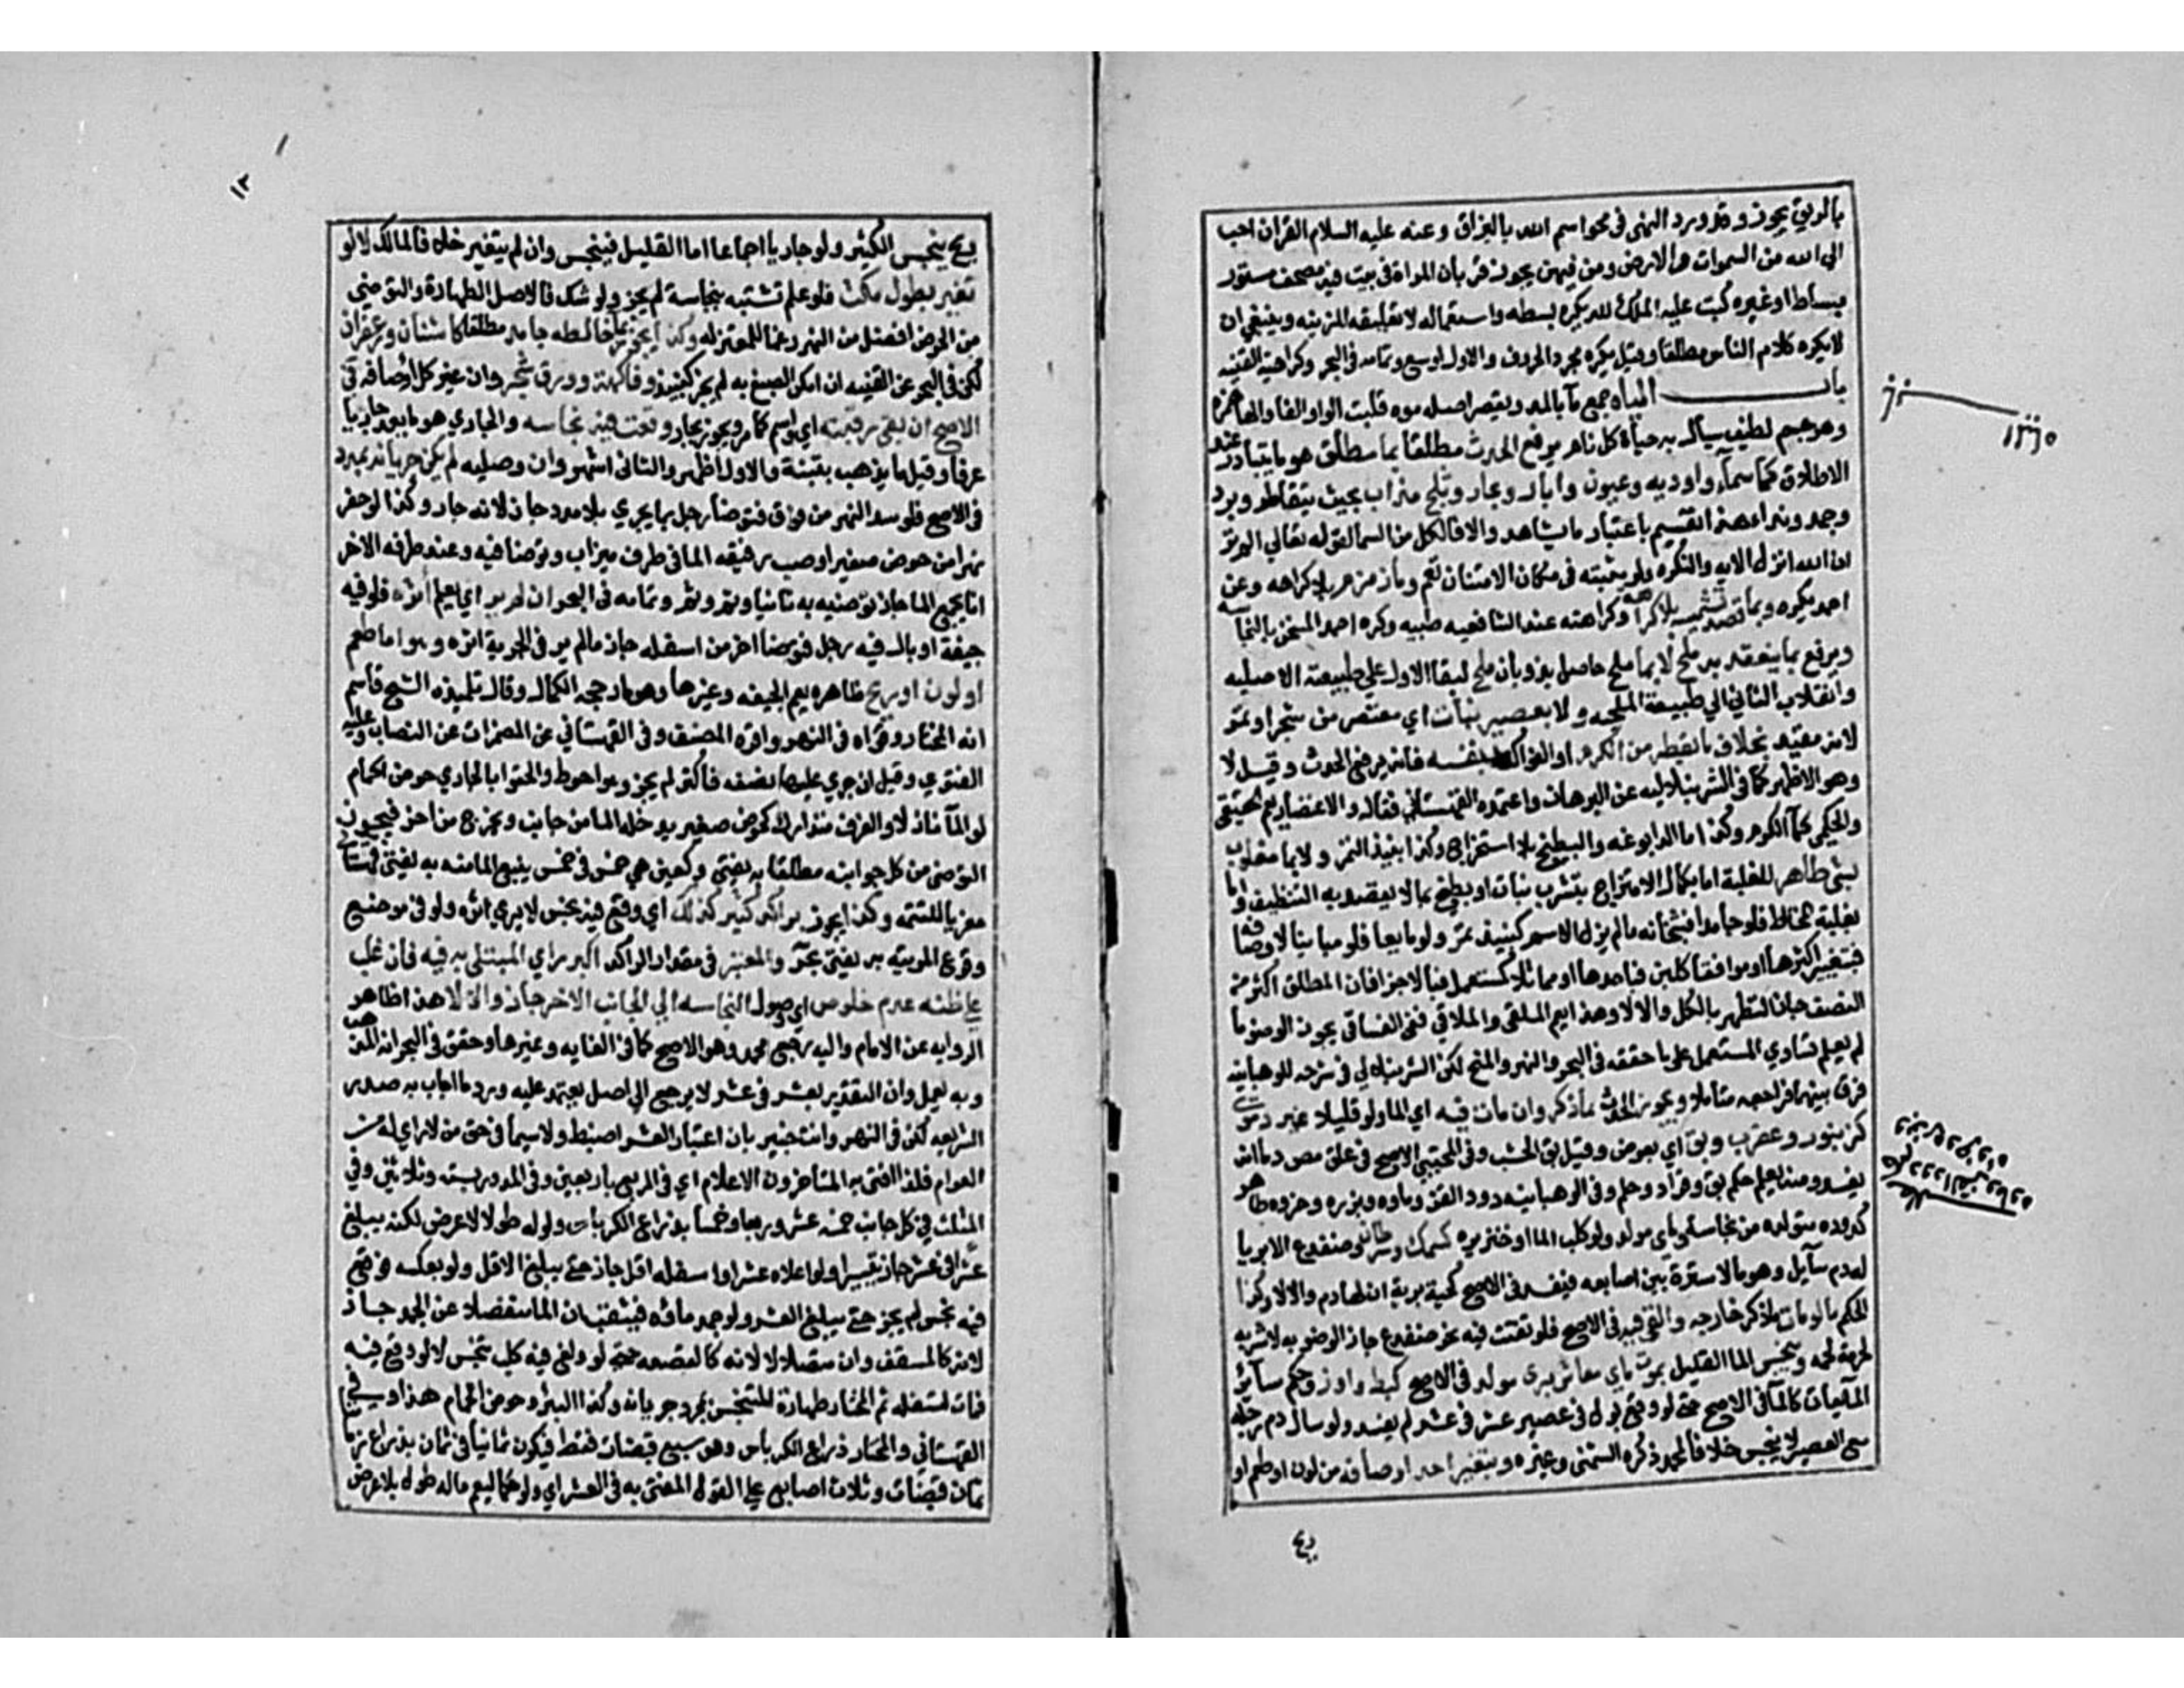 بالريق يجوز وقد ورد النهي في محو اسم الله بالبزاق وعنه عليه السلام القران احب
الى الله من السموات والارض ومن فيهن يجوز قربان المراة في بيت فيه مصحف مستور
بساط او غيره كتب عليه الملك لله يكره بسطه واستعماله لا تعليقه للزينه وينبغي ان
لا يكره كلام الناس مطلقا وقيل يكره مجرد الحروف والاول اوسع وتمامه في البحر وكراهية القنيه
باب المياه جمع ماء بالمد ويقصر اصله موه قلبت الواو الفا والهاء همزة
وهو جسم لطيف سيال به حياة كل نام يرفع الحدث مطلقا بما مطلق هو ما يتبادر عند
الاطلاق كماء سماء واوديه وعيون وابار وبحار وثلج مذاب بحيث يتقاطر وبرد
وجمد وندا هذا تقسيم باعتبار ما يشاهد والا فالكل من السما لقوله تعالي الم تر
ان الله انزل الايه والنكره ولو مثبته في مكان الامتنان تعم وماء زمزم بلا كراهه وعن
احمد يكره وبما قصد تشميسه بلا كراهة وكراهته عند الشافعيه طبيه وكره احمد المسخن بالنجاسه
ويرفع بما ينعقد به ملح لا بما ملح حاصل بذوبان ملح لبقا الاول علي طبيعته الاصليه
وانقلاب الثاني الي طبيعة الملحيه ولا بعصير نبات اي معتصر من شجر او ثمر
لانه مقيد بخلاف ما يقطر من الكرم او الفواكه بنفسه فانه يرفع الحدث وقيل لا
وهو الاظهر كما في الشرنبلاليه عن البرهان واعتمده القهستاني فقال والاعتصار يعم الحقيقي
والحكمي كماء الكرم وكذا ما الدابوغه والبطيخ بلا استخراج وكذا نبيذ التمر ولا بما مغلوب
بشي طاهر الغلبة اما بكمال الامتزاج بتشرب نبات او بطبخ بما لا يقصد به التنظيف واما
بغلبة المخالط فلو جامدا فبثخانه ما لم يزل الاسم كنبيذ تمر ولو مايعا فلو مباينا لاوصافه
فبتغيير اكثرها او موافقا كلبن فباحدها او مماثلا كمستعمل فبالاجزا فان المطلق اكثر من
النصف جاز التطهر بالكل والا لا وهذا يعم الملقى والملاقي ففي الفساقي يجوز الوضوء ما
لم يعلم تساوي المستعمل على ما حققه في البحر والنهر والمنح لكن الشرنبلالي في شرحه للوهبانيه
فرق بينهما فراجعه متاملا ويجوز رفع الحدث بما ذكر وان مات فيه اي الما ولو قليلا غير دموي
كزنبور وعقرب وبق اي بعوض وقيل بق الخشب وفي المجتبي الاصح في علق مص دم انه
يفسد ومنه يعلم حكم بق وقراد وحلم وفي الوهبانيه دود القز وماوه وبزره وخروه طاهر
كدوده متولده من نجاسة وماي مولد ولو كلب الما او خنزيره كسمك وسرطان وضفدع الا بريا
له دم سائل وهو ما لا سترة بين اصابعه فيفسد في الاصح كحية برية ان لها دم والا لا وكذا
الحكم لو مات ما ذكر خارجه والقي فيه في الاصح فلو تفتت فيه نحو ضفدع جاز الوضو به لا شربه
لحرمة لحمه وينجس الما القليل بموت ماي معاش بري مولد في الاصح كبط واوز وحكم سائر
المايعات كالماء في الاصح حتى لو وقع بول في عصير عشر في عشر لم يفسد ولو سال دم رجله
مع العصير لا ينجس خلافا لمحمد ذكره الشمني وغيره وبتغير احد اوصافه من لون او طعم او
ريح
ريح ينجس الكثير ولو جاريا اجماعا اما القليل فينجس وان لم يتغير خلافا لمالك لا لو
تغير بطول مكث فلو علم نتنه بنجاسة لم يجز ولو شك فالاصل الطهارة والتوضي
من الحوض افضل من النهر رغما للمعتزله وكذا يجوز بما خالطه جامد مطلقا كاشنان وزعفران
لكن في البحر عن القنيه ان امكن الصبغ به لم يجز كنبيذ وفاكهة وورق شجر وان غير كل اوصافه في
الاصح ان بقي رقته اي واسمه كما مر ويجوز بجار وقعت فيه نجاسه والجاري هو ما يعد جاريا
عرفا وقيل ما يذهب بتبنة والاول اظهر والثاني اشهر وان وصليه لم يكن جريانه بمدد
في الاصح فلو سد النهر من فوق فتوضا رجل بما يجري بلا مدد جاز لانه جار وكذا لو حفر
نهرا من حوض صغير او صب رفيقه الما في طرف ميزاب وتوضا فيه وعند طرفه الاخر
انا يجمع الما جاز توضيه به ثانيا وثم وثم وتمامه في البحر ان لم ير اي يعلم اثره فلو فيه
جيفة او بال فيه رجل فتوضا اخر من اسفله جاز ما لم ير في الجرية اثره وهو اما طعم
او لون او ريح ظاهره يعم الجيفه وغيرها وهو ما رجحه الكمال وقال تلميذه الشيخ قاسم
انه المختار وقواه في النهر واقره المصنف وفي القهستاني عن المضمرات عن النصاب وعليه
الفتوي وقيل ان جري عليها نصفه فاكثر لم يجز وهو احوط والحقوا بالجاري حوض الحمام
لو الما نازلا والغرف متدارك كحوض صغير يدخله الما من جانب ويخرج من اخر فيجوز
التوضي من كل جوانبه مطلقا به يفتي وكعين هي خمس في خمس ينبع الما منه به يفتي قهستاني
معزيا للتتمه وكذا يجوز براكد كثير كذلك اي وقع فيه نجس لا يري اثره ولو في موضع
وقوع المرئيه به يفتي بحر والمعتبر في مقدار الراكد اكبر راي المبتلى به فيه فان غلب
على ظنه عدم خلوص اي وصول النجاسه الي الجانب الاخر جاز والا لا هذا ظاهر
الروايه عن الامام واليه رجع محمد وهو الاصح كما في الغايه وغيرها وحقق في البحر انه المذهب
وبه يعمل وان التقدير بعشر في عشر لا يرجع الي اصل يعتمد عليه ورد ما اجاب به صدر
الشريعه لكن في النهر وانت خبير بان اعتبار العشر اضبط ولا سيما في حق من لا راي له من
العوام فلذا افتى به المتاخرون الاعلام اي في المربع باربعين وفي المدور بسته وثلاثين وفي
المثلث في كل جانب خمسة عشر وربعا وخمسا بذراع الكرباس ولو له طول لا عرض لكنه يبلغ
عشرا في عشر جاز تيسيرا ولو اعلاه عشرا واسفله اقل جاز حتي يبلغ الاقل ولو بعكسه فوقع
فيه نجس لم يجز حتي يبلغ العشر ولو جمد ماؤه فثقب ان الما منفصلا عن الجمد جاز
لانه كالمسقف وان متصلا لا لانه كالقصعه حتى لو ولغ فيه كلب تنجس لا لو وقع فيه
فمات لتسفله ثم المختار طهارة المتنجس بمجرد جريانه وكذا البئر وحوض الحمام هذا وفي
القهستاني والمختار ذراع الكرباس وهو سبع قبضات فقط فيكون ثمانيا في ثمان بذراع زماننا
ثمان قبضات وثلاث اصابع علي القول المفتى به في العشر اي ولو حكما ليعم ماله طول بلا عرض